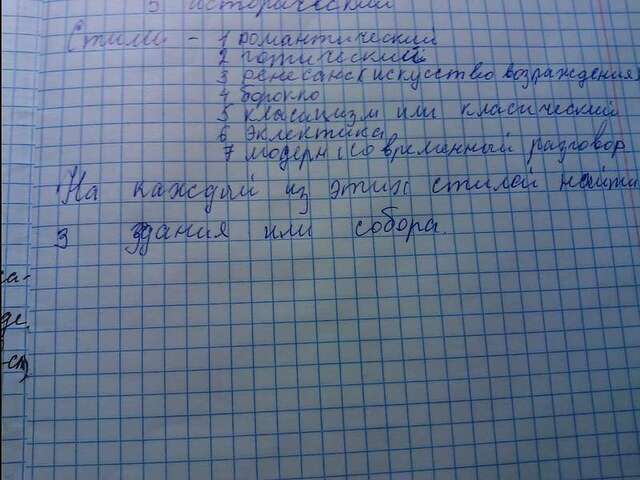 5 исторический
Стили - 1 романтический
2 готический
3 ренесанс (искусство возраждения)
4 борокко
5 класицизм или класический
6 эклектика
7 модерн (современный разговор
На каждый из этих стилей найти
3 здания или собора.
са-
де
-ся)